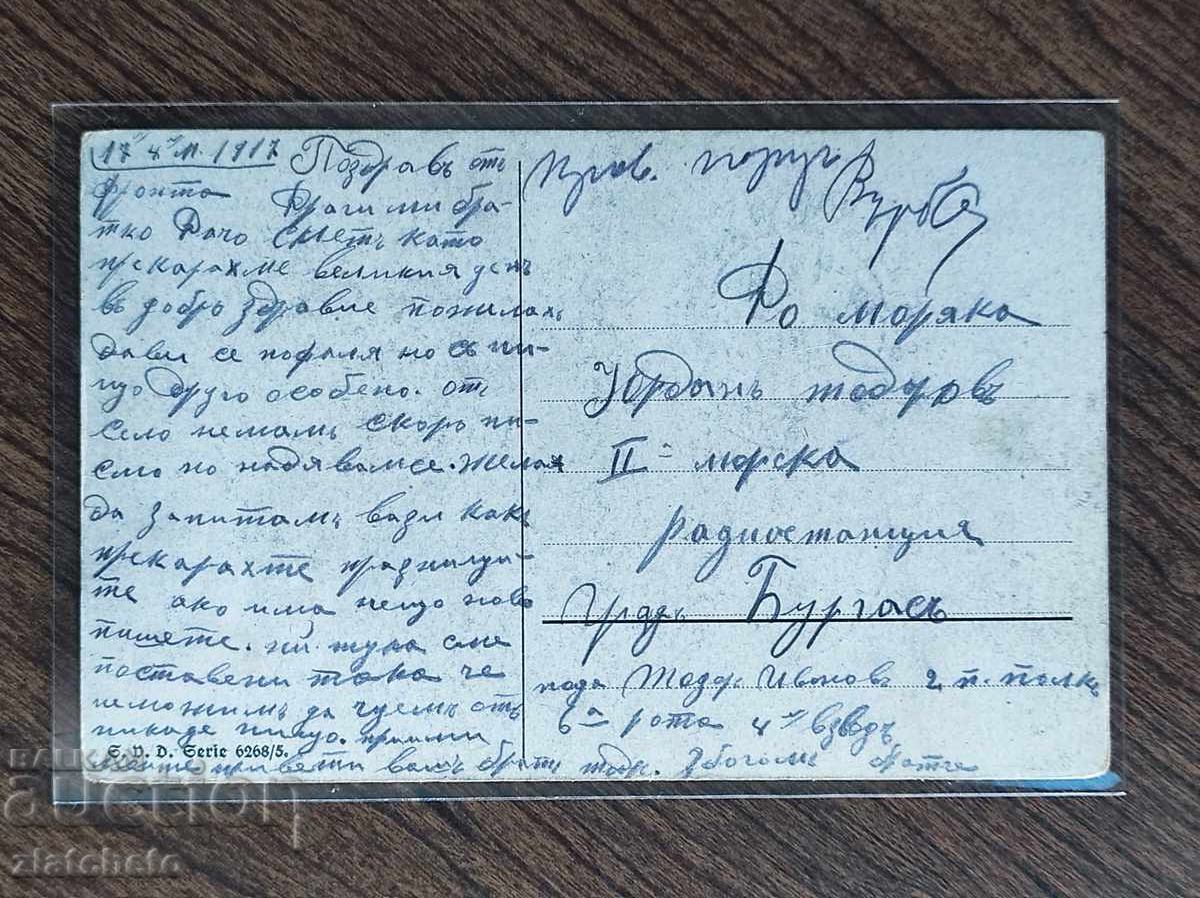 17 4 м. 1917 Поздравъ отъ
фронта Драги ми бра-
тко Дачо светъ като
прекарахме великия денъ
въ добро здравие пожилах
да ви се пофаля но съ ни-
що друго особено. отъ
село немамъ скоро пи-
смо но надявамсе. Желая
да запитамъ вази какъ
прекарахте праднищи-
те ако има нещо ново
пишете. ний тука сме
поставени така че
неможимъ да чуемъ отъ
никаде нищо. приими
приветъ вашъ братъ тодр. Збогомъ братче
Пров. поруч.
До моряка
Юрданъ тодоровъ
II-а морска
радиостанция
Градъ Бургасъ
подъ Тодор Ивановъ 2 п. полкъ
6а рота 4й взводъ
S. V. D. Serie 6268/5.
БАЛКАН
АУКЦИОН
zlatcheto